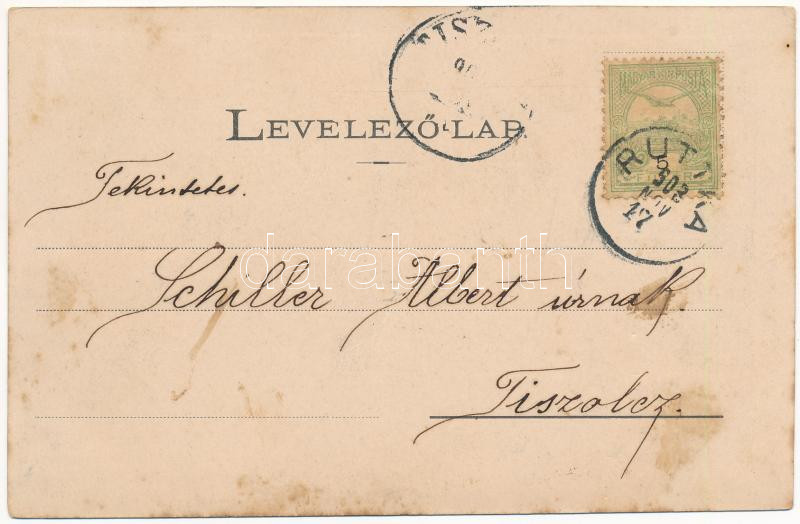 LEVELEZŐ-LAP
MAGYAR KIR. POSTA
5
RUTTKA
902
NOV
17
Tekintetes.
Schiller Albert úrnak.
Tiszolcz.
darabanth